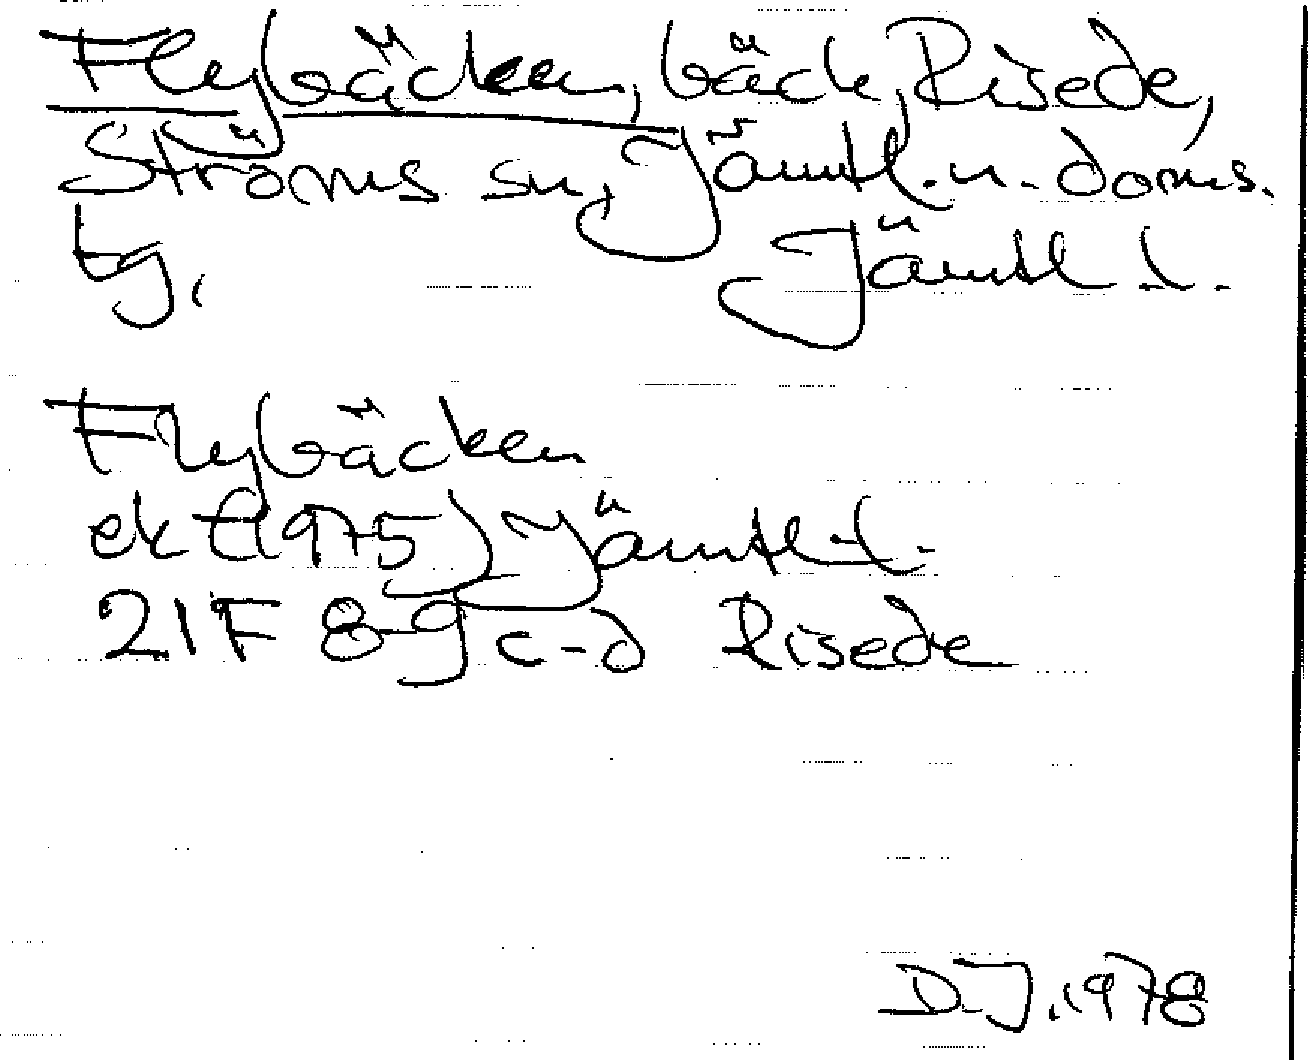 Flybäcken, bäck, Risede,
Ströms sn, Jämtl. n. doms.
tg,
Jämtl. l.
Flybäcken
ek (1975) Jämtl. l.
21F 8-9 c-d Risede
D.J. 1978